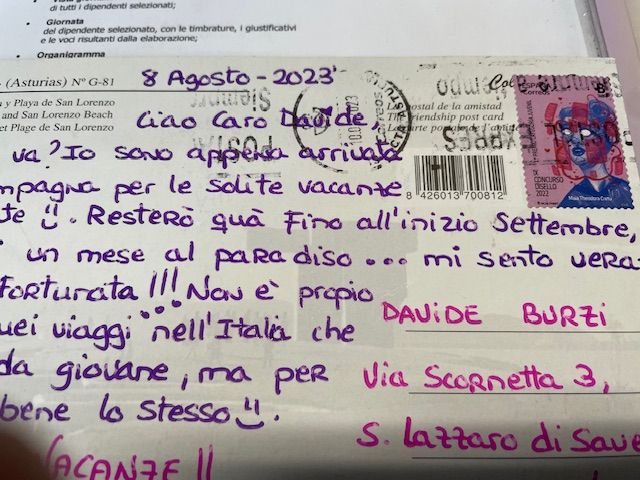 di tutti i dipendenti selezionati;
• Giornata
del dipendente selezionato, con le timbrature, i giustificativi
e le voci risultanti dalla elaborazione;
• Organigramma
(Asturias) Nº G-81
8 Agosto - 2023
y Playa de San Lorenzo
and San Lorenzo Beach
et Plage de San Lorenzo
postal de la amistad
The friendship post card
ESPAÑA
CORREOS
1er CONCURSO
DISELLO
2022
Maia Theodora Cortu
8 426013 700812
Ciao Caro Davide,
va? Io sono appena arrivata
mpagna per le solite vacanze
te !! . Resterò quà fino all'inizio Settembre,
un mese al paradiso... mi sento vera
fortunata !!! Non è propio
uei viaggi "nell'Italia che
da giovane, ma per
bene lo stesso !! .
VACANZE !!
DAVIDE BURZI
Via Scornetta 3,
S. Lazzaro di Save